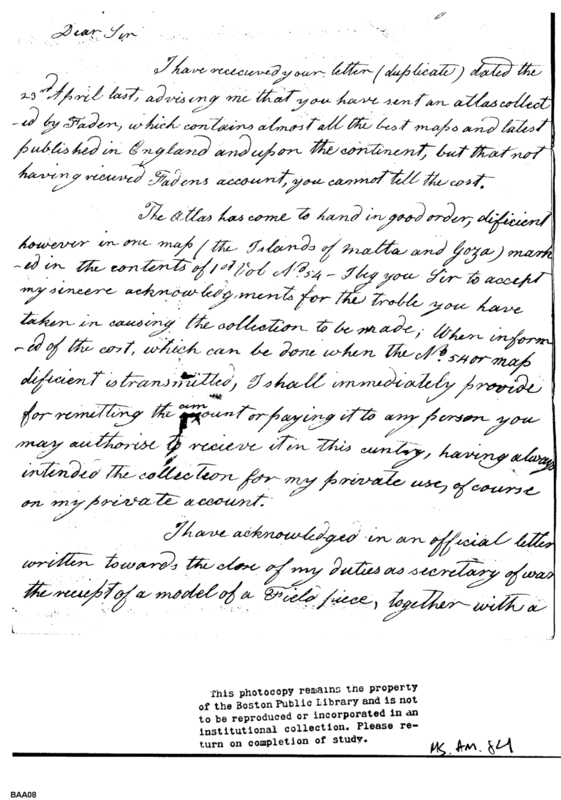 Dear Sir
I have receieved your letter (duplicate) dated the
23rd April last, advising me that you have sent an atlas collect
-ed by Faden, which contains almost all the best maps and latest
published in England and upon the continent, but that not
having recieved Fadens account, you cannot tell the cost.
The Atlas has come to hand in good order, dificient
however in one map (the Islands of Malta and Goza) mark
-ed in the contents of 1st Vol No 54 - I beg you Sir to accept
my sincere acknowledgments for the troble you have
taken in causing the collection to be made; When inform
-ed of the cost, which can be done when the No 54 or map
dificient is transmitted, I shall immediately provide
for remitting the amount or paying it to any person you
may authorise to recieve it in this cuntry, having always
intended the collection for my private use, of course
on my private account.
I have acknowledged in an official letter
written towards the close of my duties as secretary of war
the reciept of a model of a Field piece, together with a
This photocopy remains the property
of the Boston Public Library and is not
to be reproduced or incorporated in an
institutional collection. Please re-
turn on completion of study.
MS. AM. 84
BAA08